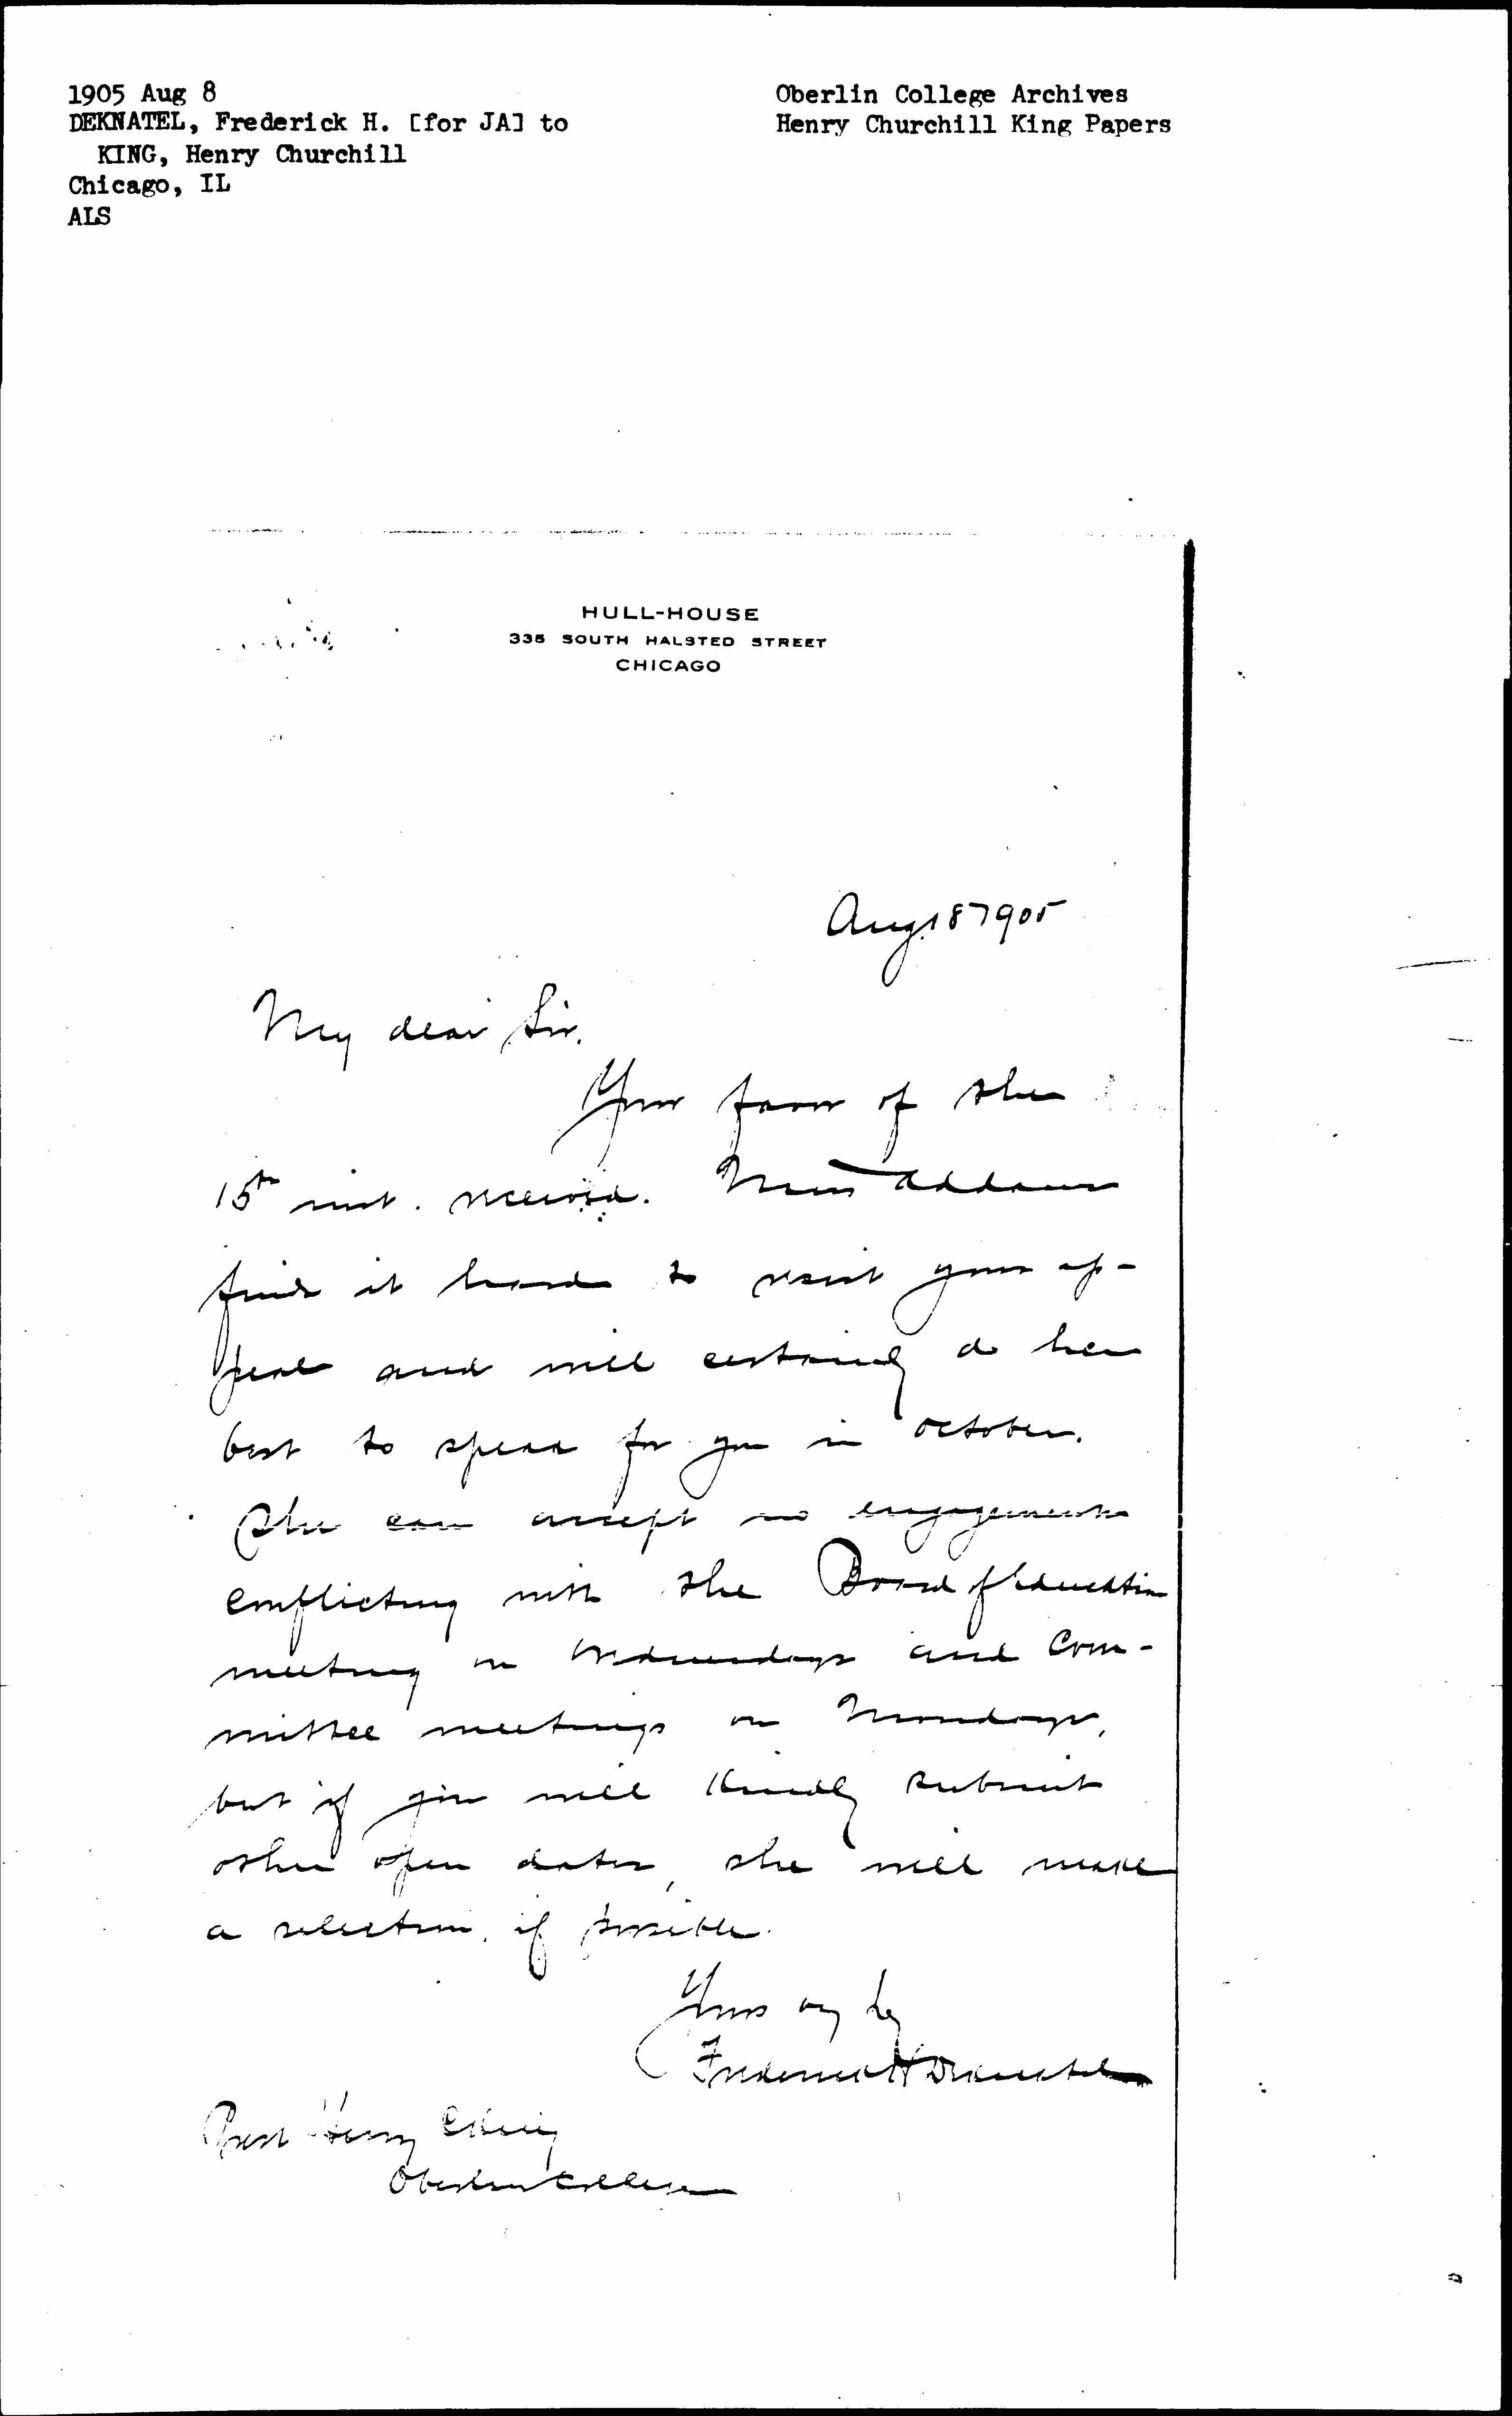 1905 Aug 8
DEKNATEL, Frederick H. [for JA] to
KING, Henry Churchill
Chicago, IL
ALS
Oberlin College Archives
Henry Churchill King Papers
HULL-HOUSE
335 SOUTH HALSTED STREET
CHICAGO
Aug 18 1905
My dear Sir.
Your favor of the
15th inst. received. Miss Addams
finds it hard to resist your ap-
peal and will certainly do her
best to speak for you in October.
She can accept no engagements
conflicting with the Board of Education
meeting on Wednesdays and Com-
mittee meetings on Mondays,
but if you will kindly submit
other open dates, she will make
a selection, if possible.
Yours very truly
Frederick H Deknatel
Prest Henry C King
Oberlin College